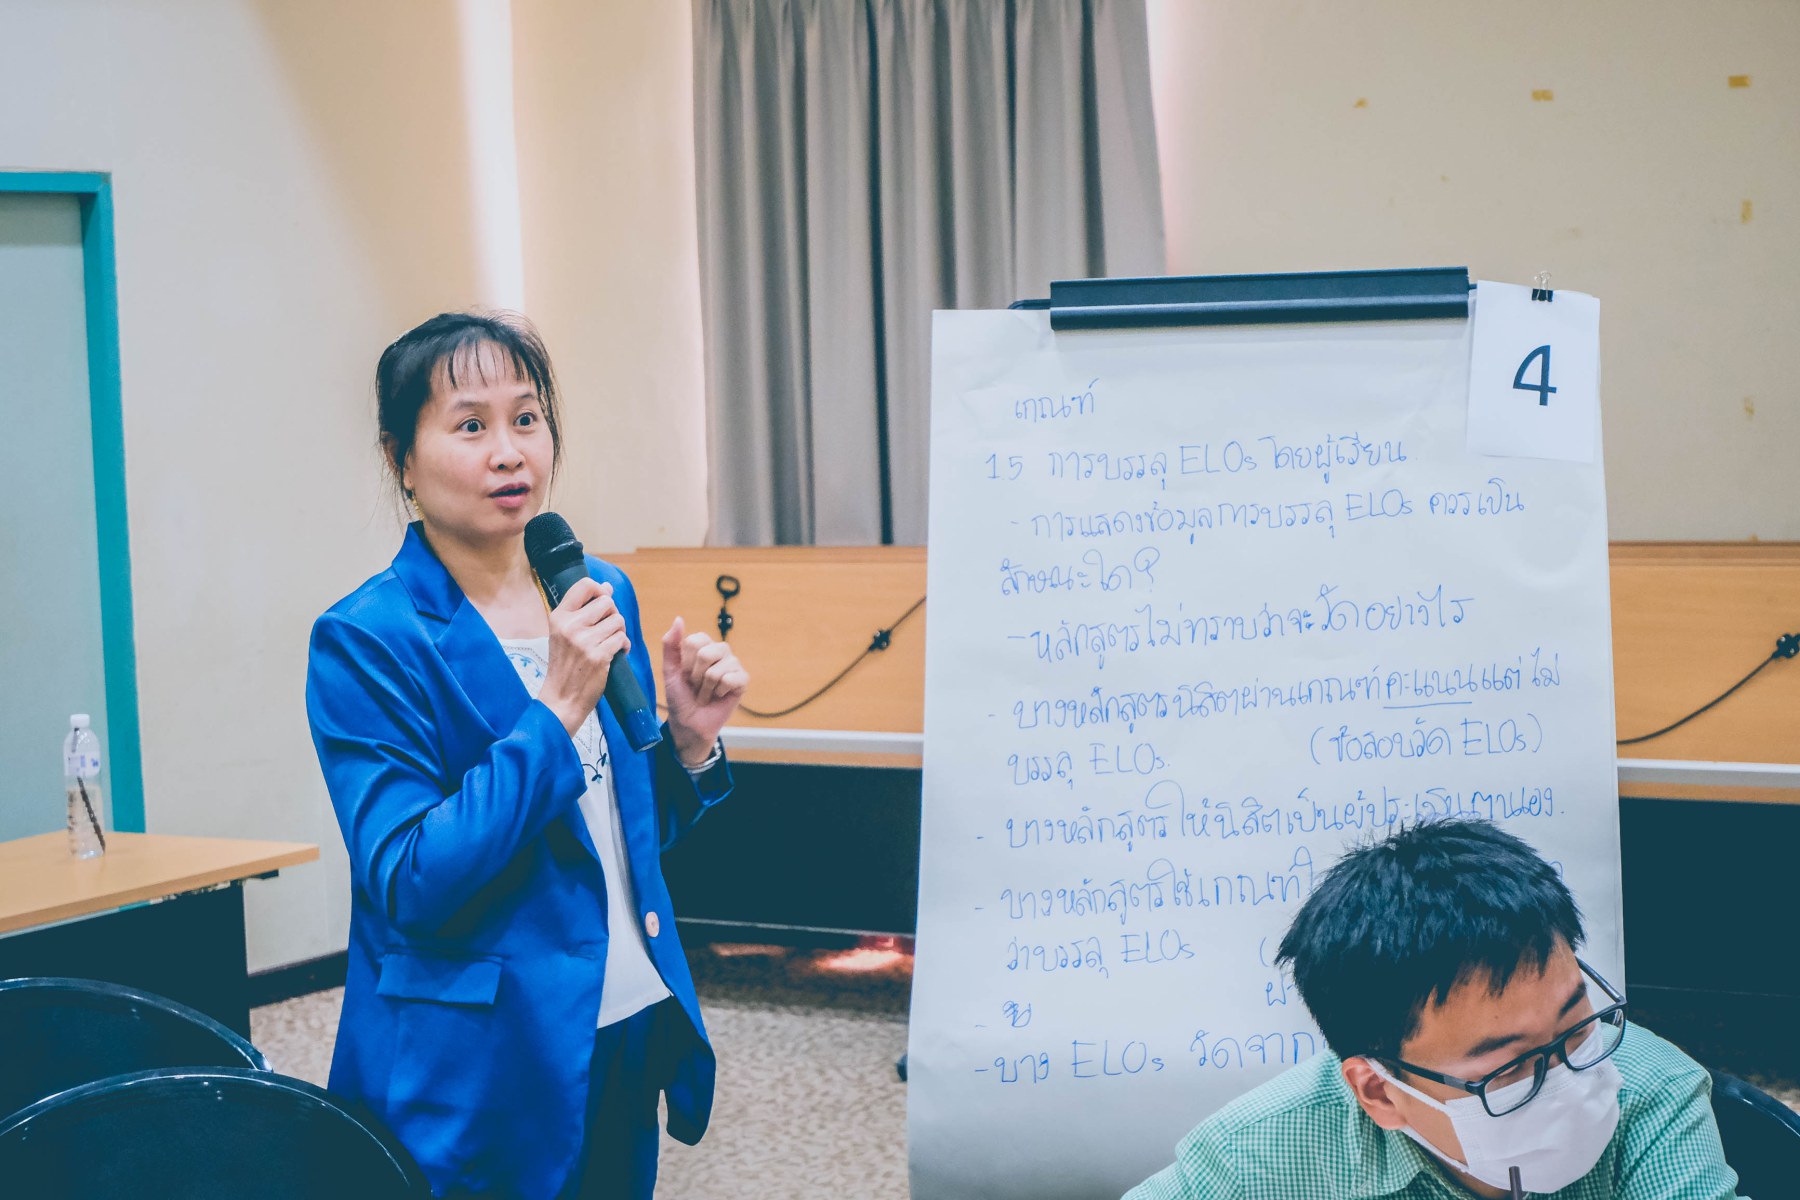 4
เกณฑ์
15 การบรรลุ ELOs โดยผู้เรียน.
- การแสดงข้อมูลการบรรลุ ELOs ควรเป็น
ลักษณะใด?
- หลักสูตรไม่ทราบว่าจะวัดอย่างไร
- บางหลักสูตรนิสิตผ่านเกณฑ์คะแนนแต่ไม่
บรรลุ ELOs. (ข้อสอบวัด ELOs)
- บางหลักสูตรให้นิสิตเป็นผู้ประเมินตนเอง.
- บางหลักสูตรใช้เกณฑ์
ว่าบรรลุ ELOs (
-
- บาง ELOs วัดจาก